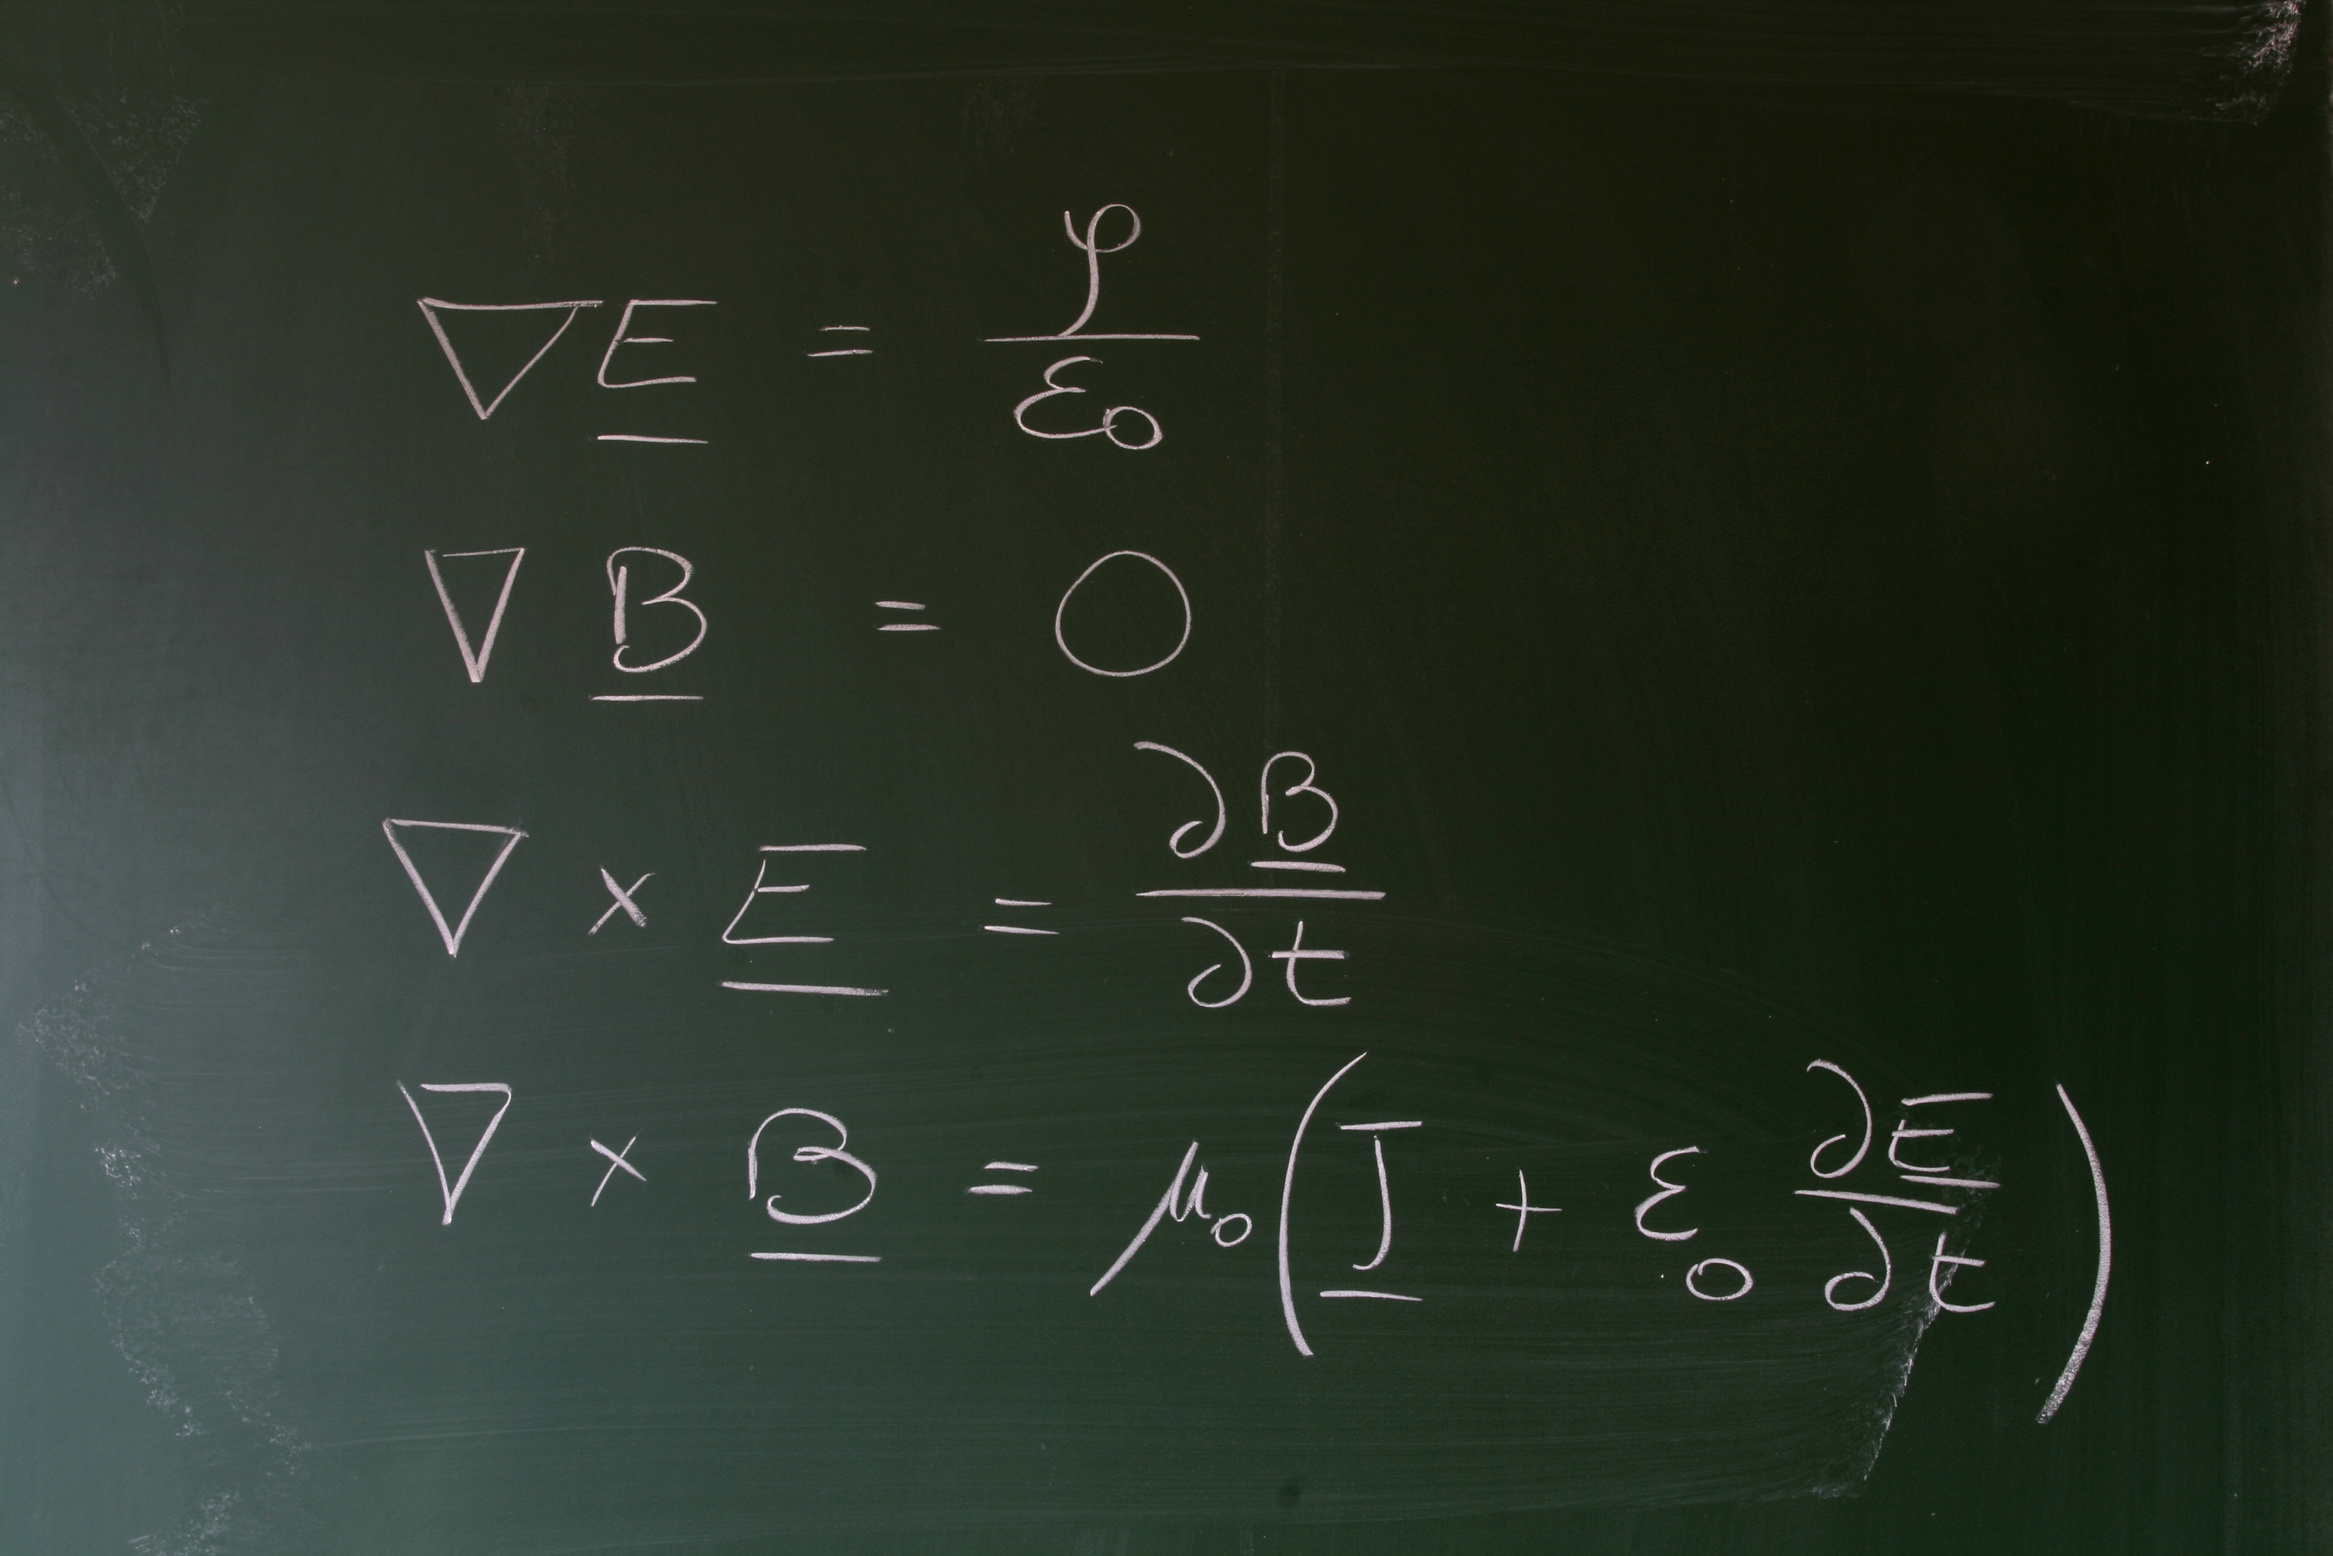 ∇E̲ = φ/ε₀
∇ B̲ = 0
∇ × E̲ = ∂B̲/∂t
∇ × B̲ = μ₀(J̲ + ε₀ ∂E̲/∂t)